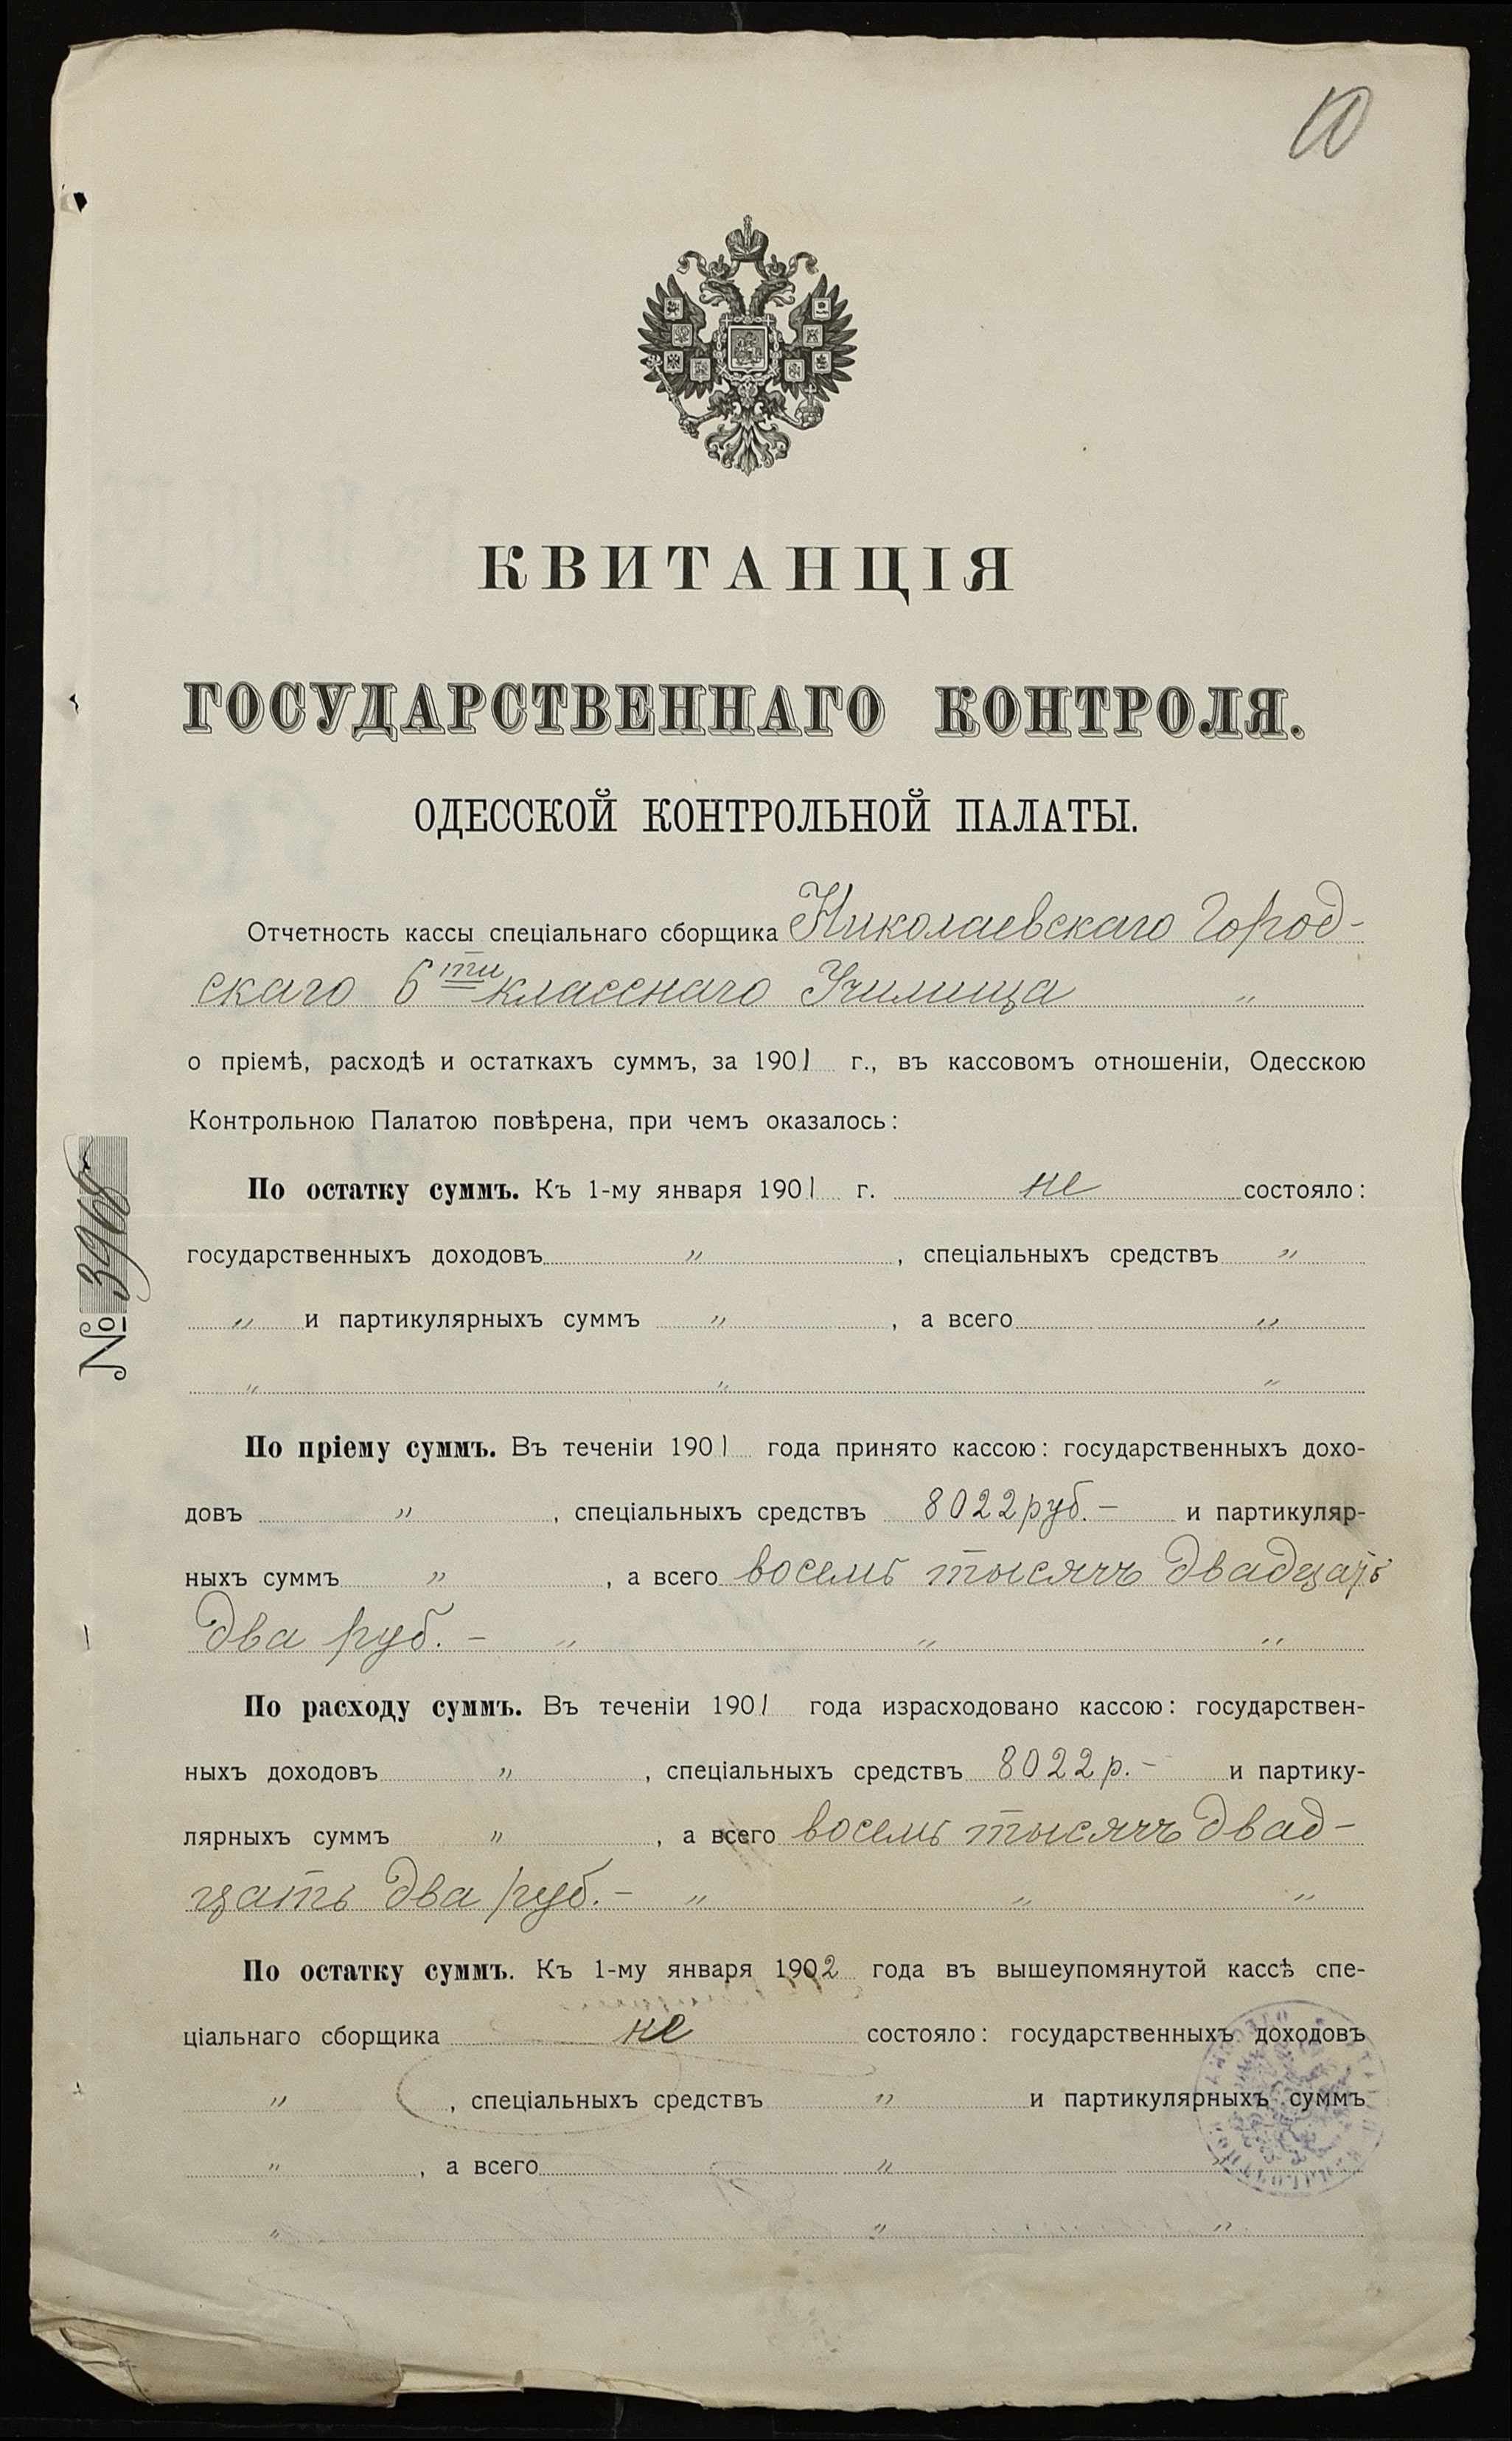 10
КВИТАНЦІЯ
ГОСУДАРСТВЕННАГО КОНТРОЛЯ.
ОДЕССКОЙ КОНТРОЛЬНОЙ ПАЛАТЫ.
Отчетность кассы спеціальнаго сборщика Николаевскаго Город-
скаго 6ти класснаго Училища "
о пріемѣ, расходѣ и остаткахъ суммъ, за 1901 г., въ кассовомъ отношеніи, Одесскою
Контрольною Палатою повѣрена, при чемъ оказалось:
По остатку суммъ. Къ 1-му января 1901 г. не состояло:
государственныхъ доходовъ " , спеціальныхъ средствъ "
" и партикулярныхъ суммъ " , а всего "
" " "
По пріему суммъ. Въ теченіи 1901 года принято кассою: государственныхъ дохо-
довъ " , спеціальныхъ средствъ 8022 руб. — и партикуляр-
ныхъ суммъ " , а всего восемь тысячъ двадцать
два руб. — " " "
По расходу суммъ. Въ теченіи 1901 года израсходовано кассою: государствен-
ныхъ доходовъ " , спеціальныхъ средствъ 8022 р. — и партику-
лярныхъ суммъ " , а всего восемь тысячъ двад-
цать два руб. — " " "
По остатку суммъ. Къ 1-му января 1902 года въ вышеупомянутой кассѣ спе-
ціальнаго сборщика не состояло: государственныхъ доходовъ
" , спеціальныхъ средствъ " и партикулярныхъ суммъ
" , а всего " "
" " "
№ 3968